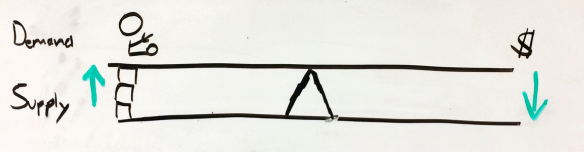 Demand $
Supply